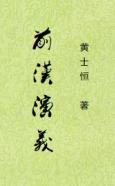 黄士恒 著
前漢演義